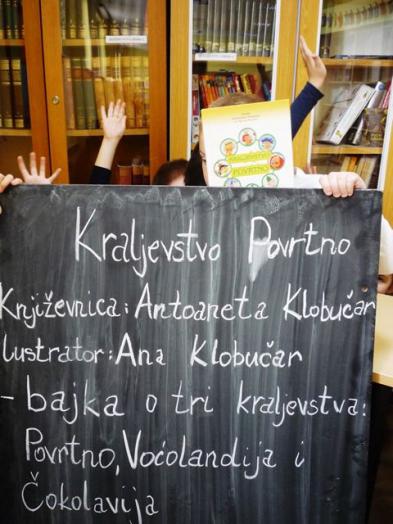 KRALJEVSTVO
POVRTNO
Kraljevstvo Povrtno
Književnica: Antoaneta Klobučar
lustrator: Ana Klobučar
- bajka o tri kraljevstva:
Povrtno, Voćolandija i
Čokolavija